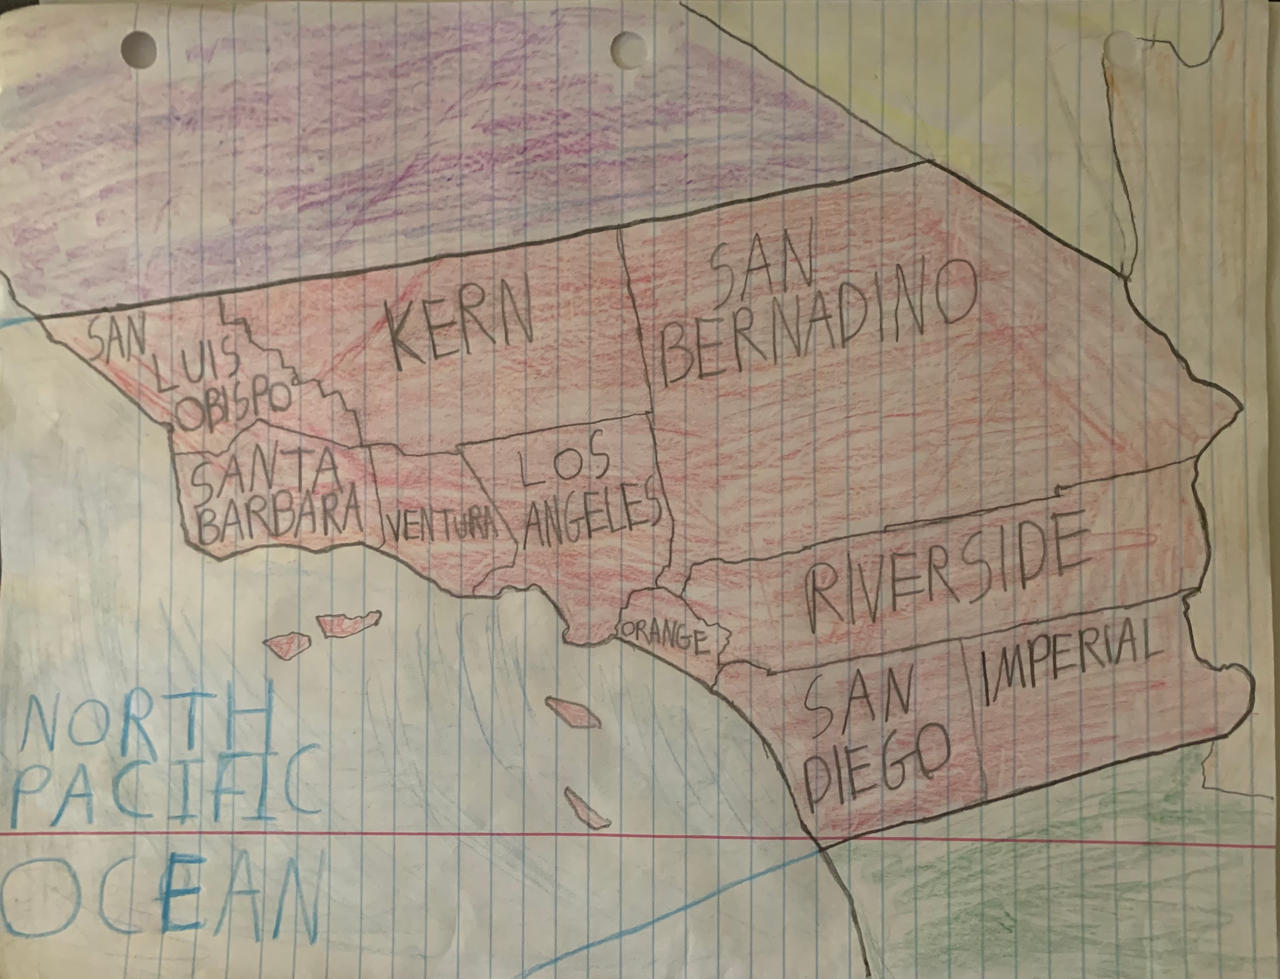 SAN
LUIS
OBISPO
KERN
SAN
BERNADINO
SANTA
BARBARA
VENTURA
LOS
ANGELES
ORANGE
RIVERSIDE
SAN
DIEGO
IMPERIAL
NORTH
PACIFIC
OCEAN